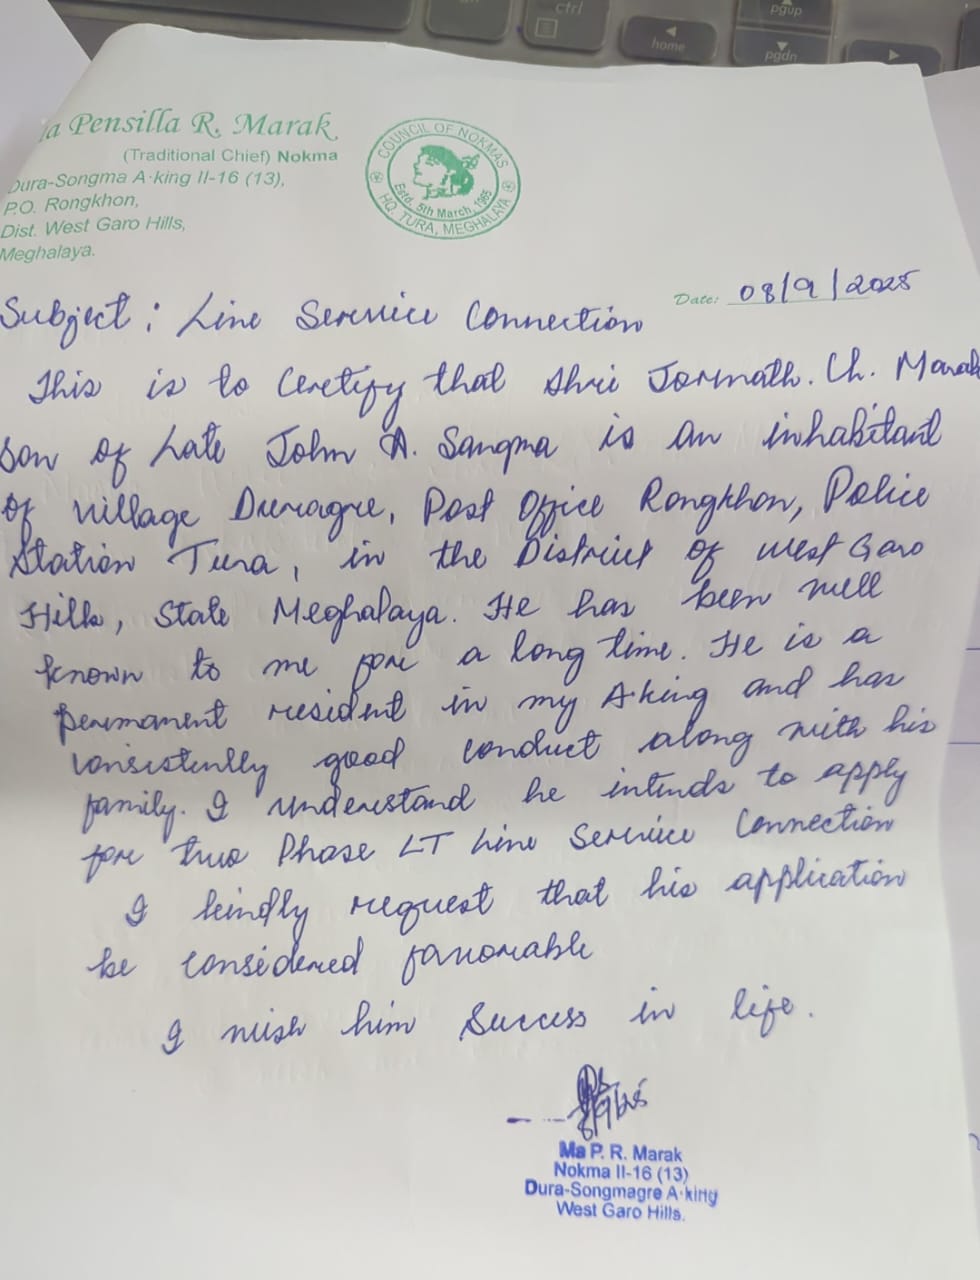 ctrl
home
pgup
pgdn
a Pensilla R. Marak.
(Traditional Chief) Nokma
Dura-Songma A·king II-16 (13),
P.O. Rongkhon,
Dist. West Garo Hills,
Meghalaya.
COUNCIL OF NOKMAS
Estd. 5th March, 1965
HQ. TURA, MEGHALAYA
Date: 08/9/2025
Subject: Line Service Connection
This is to Certify that Shri Jormath. Ch. Marak
son of Late John A. Sangma is an inhabitant
of village Duragre, Post Office Rongkhon, Police
Station Tura, in the District of West Garo
Hills, State Meghalaya. He has been well
known to me for a long time. He is a
permanent resident in my A·king and has
consistently good conduct along with his
family. I understand he intends to apply
for two Phase LT Line Service Connection
I kindly request that his application
be considered favorable
I wish him Success in life.
8/9/25
Ma P. R. Marak
Nokma II-16 (13)
Dura-Songmagre A·king
West Garo Hills.